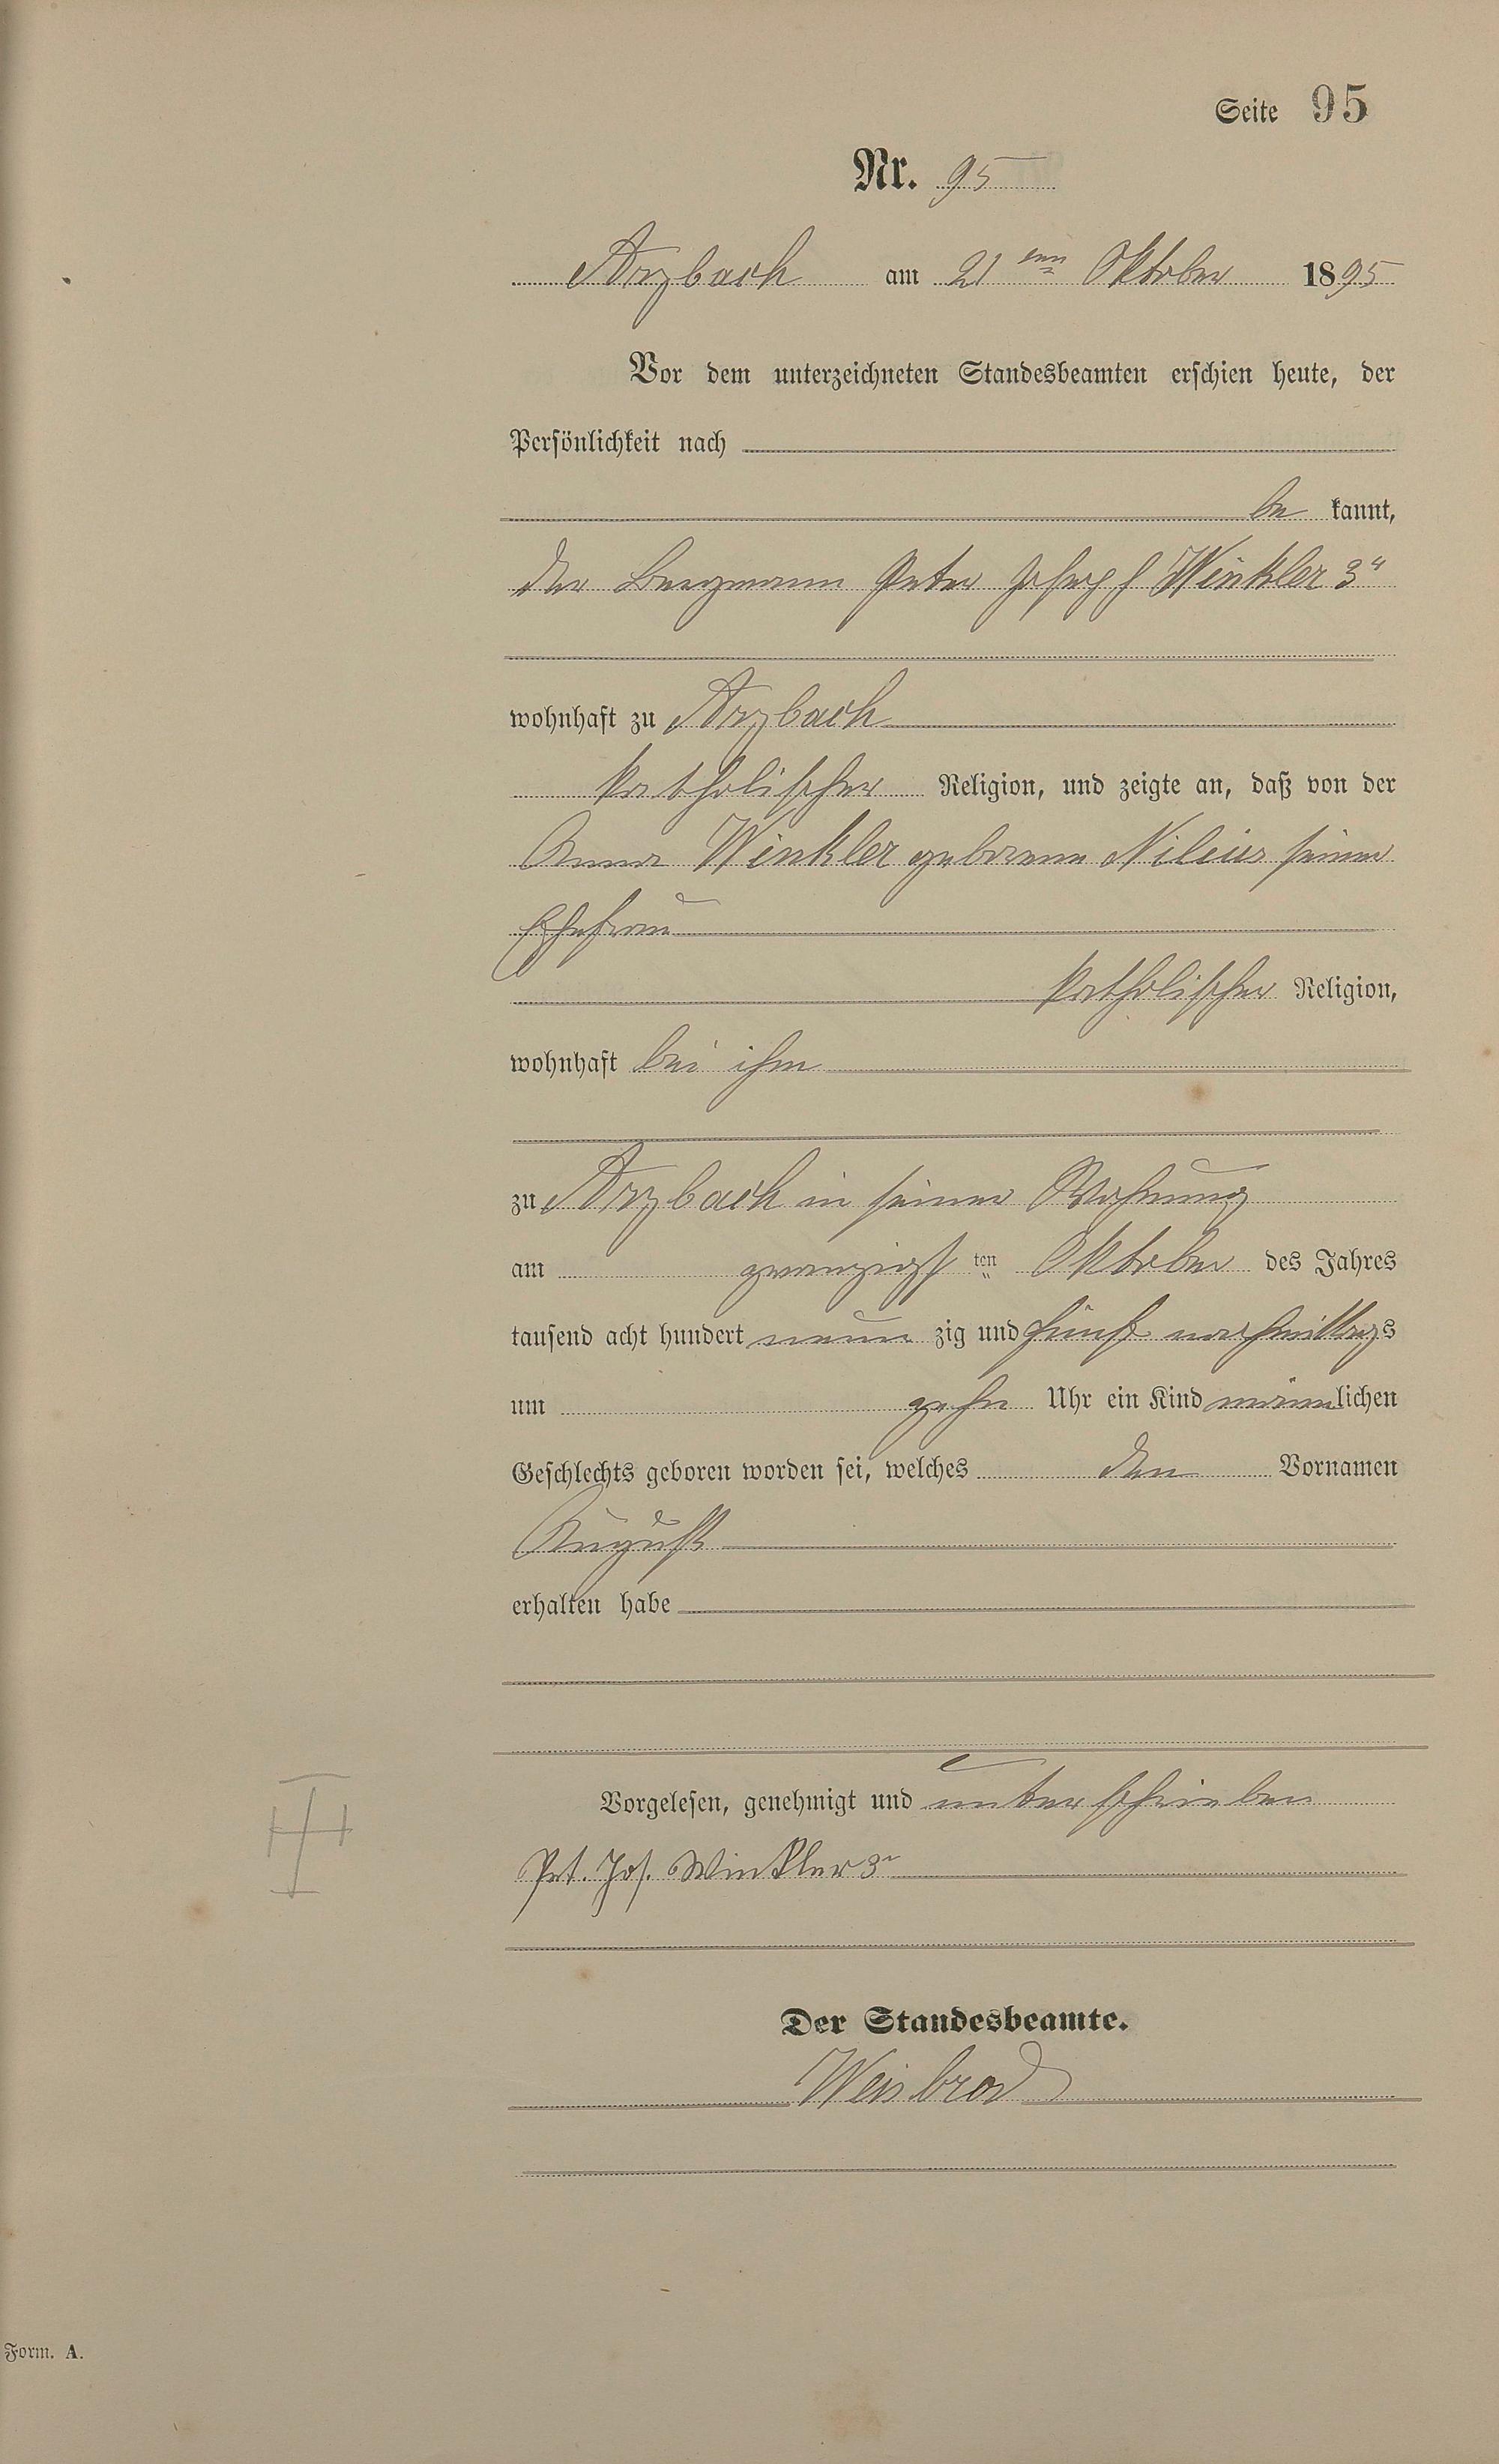 Seite 95
Nr. 95
Arzbach am 21ten Oktober 1895
Vor dem unterzeichneten Standesbeamten erschien heute, der
Persönlichkeit nach
be kannt,
der Bergmann Peter Joseph Winkler 3r
wohnhaft zu Arzbach
katholischer Religion, und zeigte an, daß von der
Anna Winkler geborene Nilius seiner
Ehefrau
katholischer Religion,
wohnhaft bei ihm
zu Arzbach in seiner Wohnung
am zwanzigsten Oktober des Jahres
tausend acht hundert neun zig und fünf nachmittags
um zehn Uhr ein Kind männlichen
Geschlechts geboren worden sei, welches den Vornamen
August
erhalten habe
Vorgelesen, genehmigt und unterschrieben
Pet. Jos. Winkler 3r
Der Standesbeamte.
Weisbrod
Form. A.